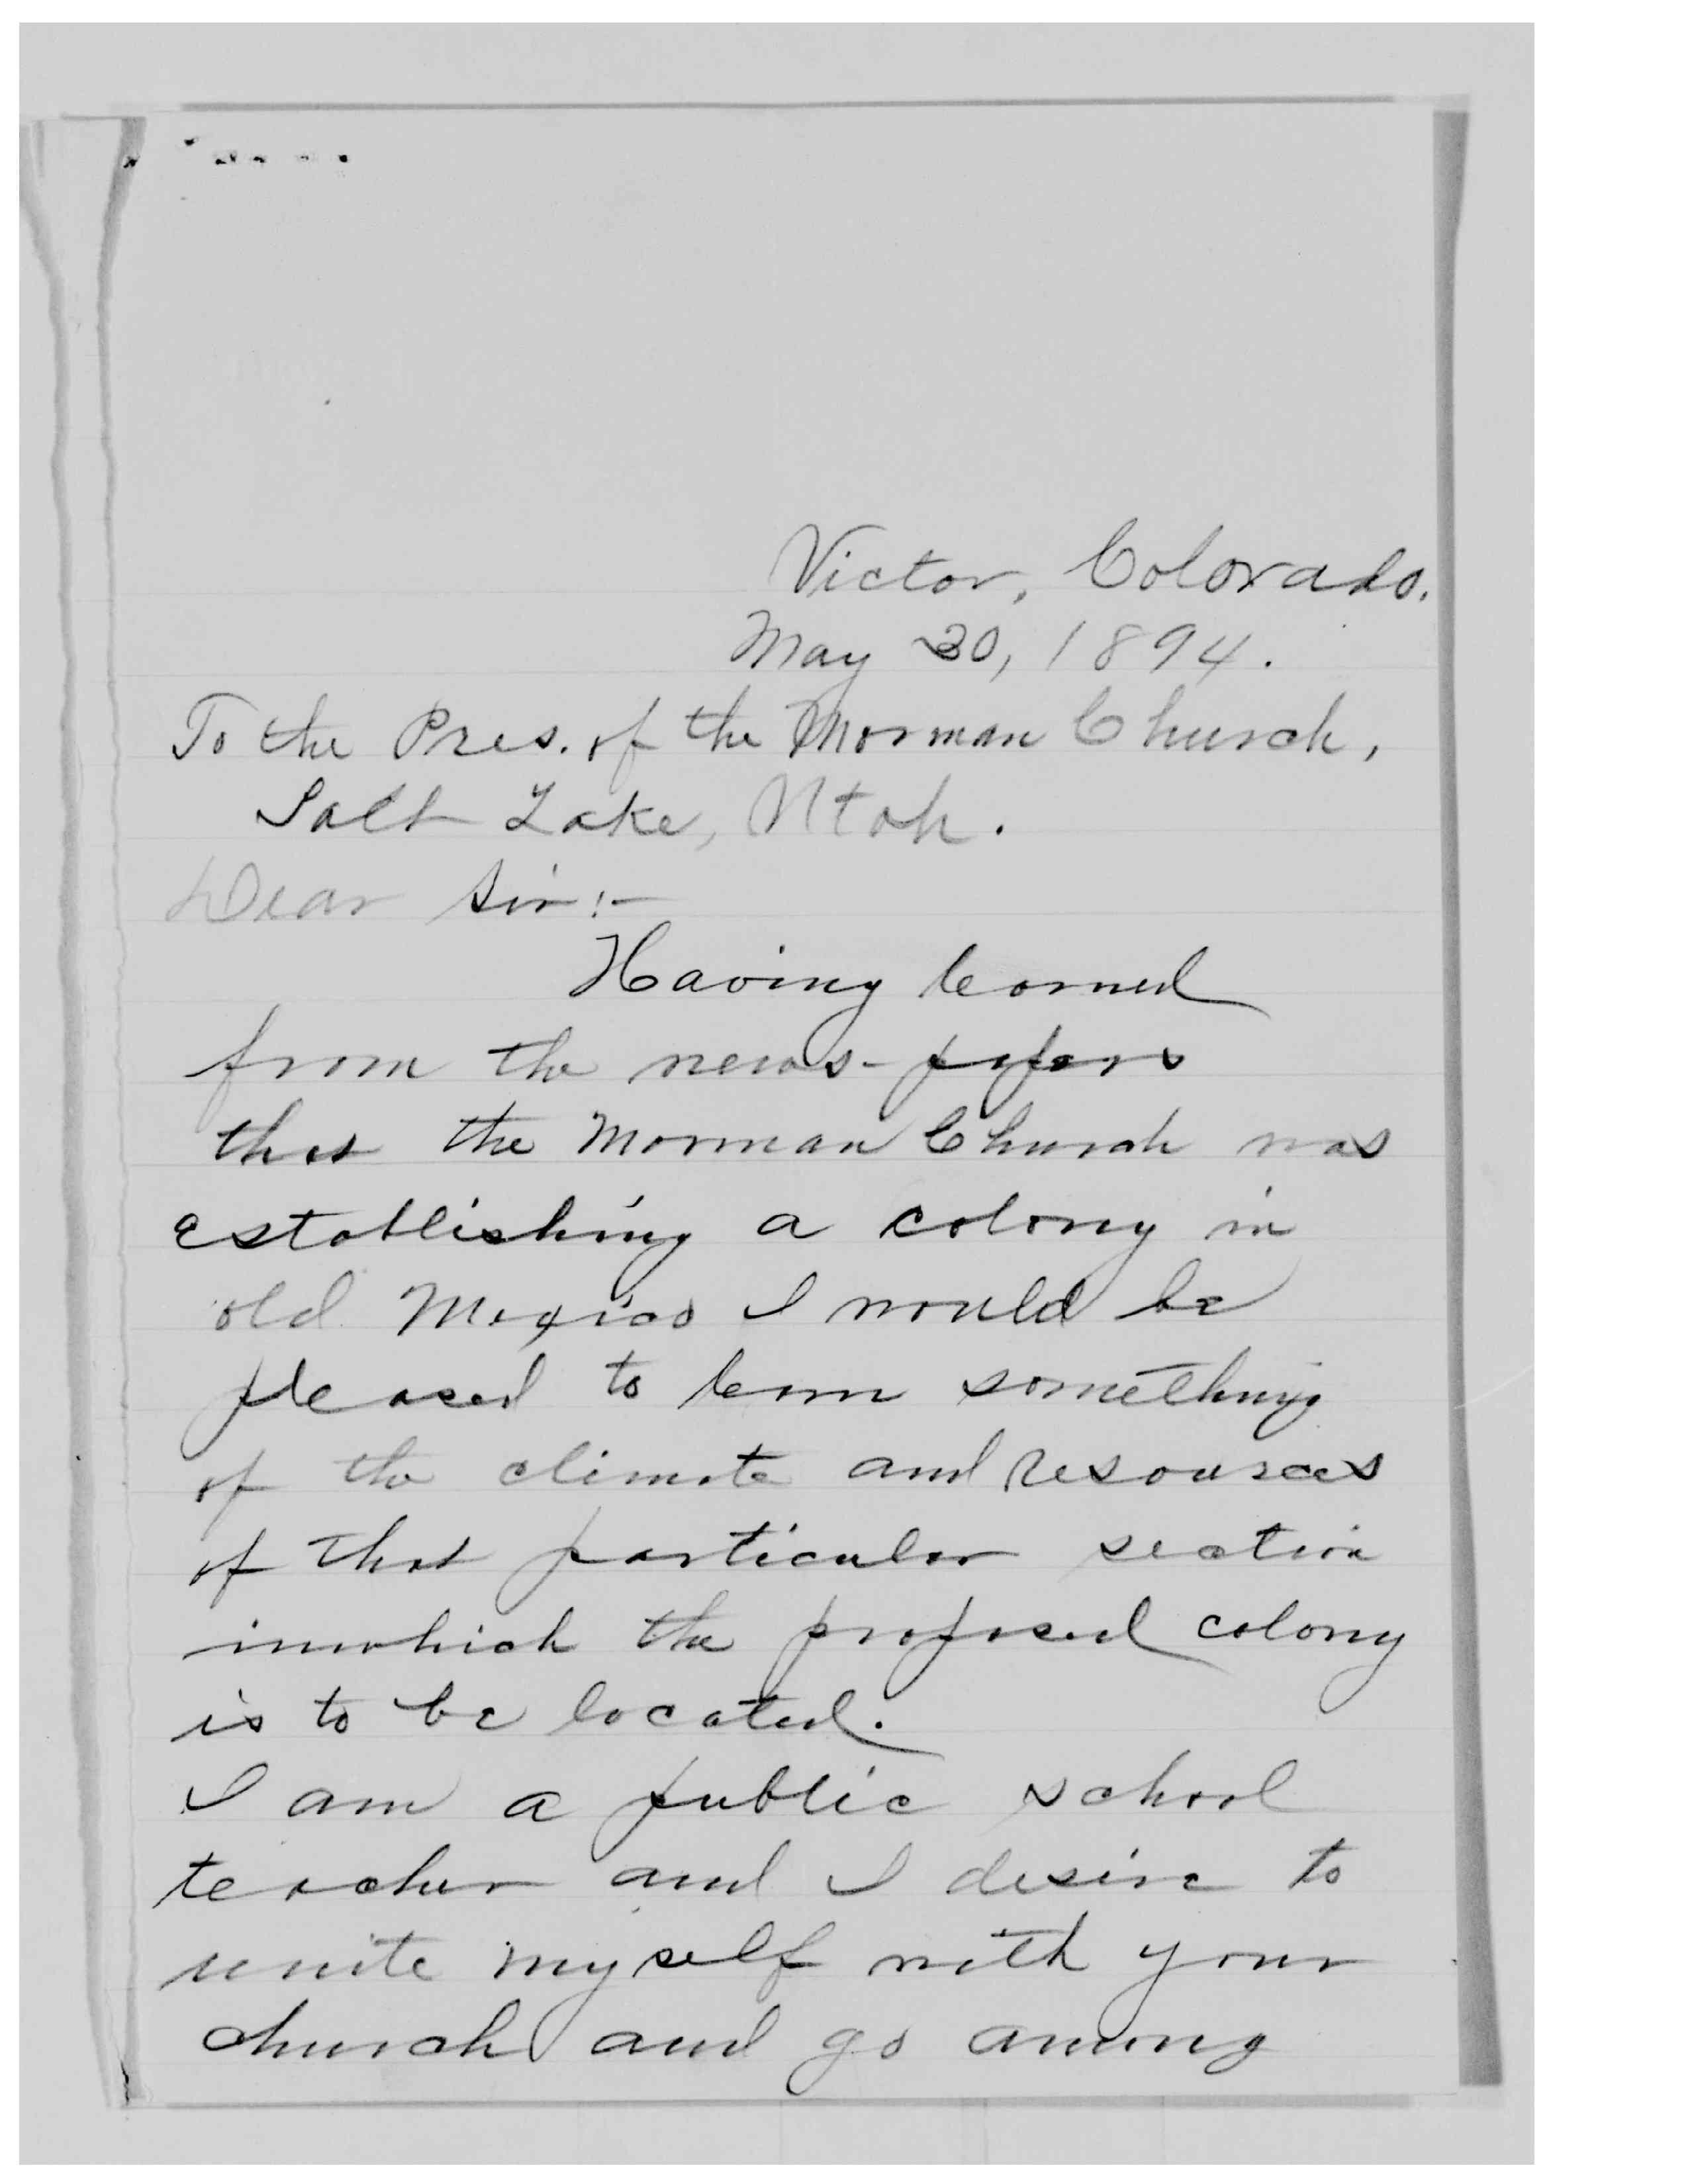 Victor, Colorado.
May 30, 1894.
To the Pres. of the Morman Church,
Salt Lake, Utah.
Dear Sir:-
Having learned
from the news-papers
that the Morman Church was
establishing a colony in
old Mexico I would be
pleased to learn something
of the climate and resources
of that particular section
inwhich the proposed colony
is to be located.
I am a public school
teacher and I desire to
unite myself with your
church and go among